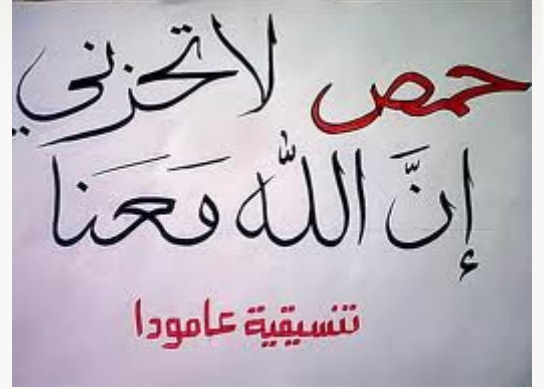 حمص لا تحزني
إنَّ الله مَعَنا
تنسيقية عامودا